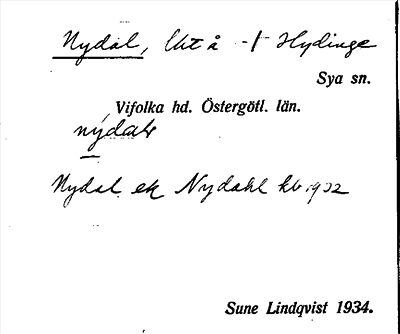 Nydal, Utå -/- Hydinge
Sya sn.
Vifolka hd. Östergötl. län.
Nydal ek Nydahl kb 1932
Sune Lindqvist 1934.